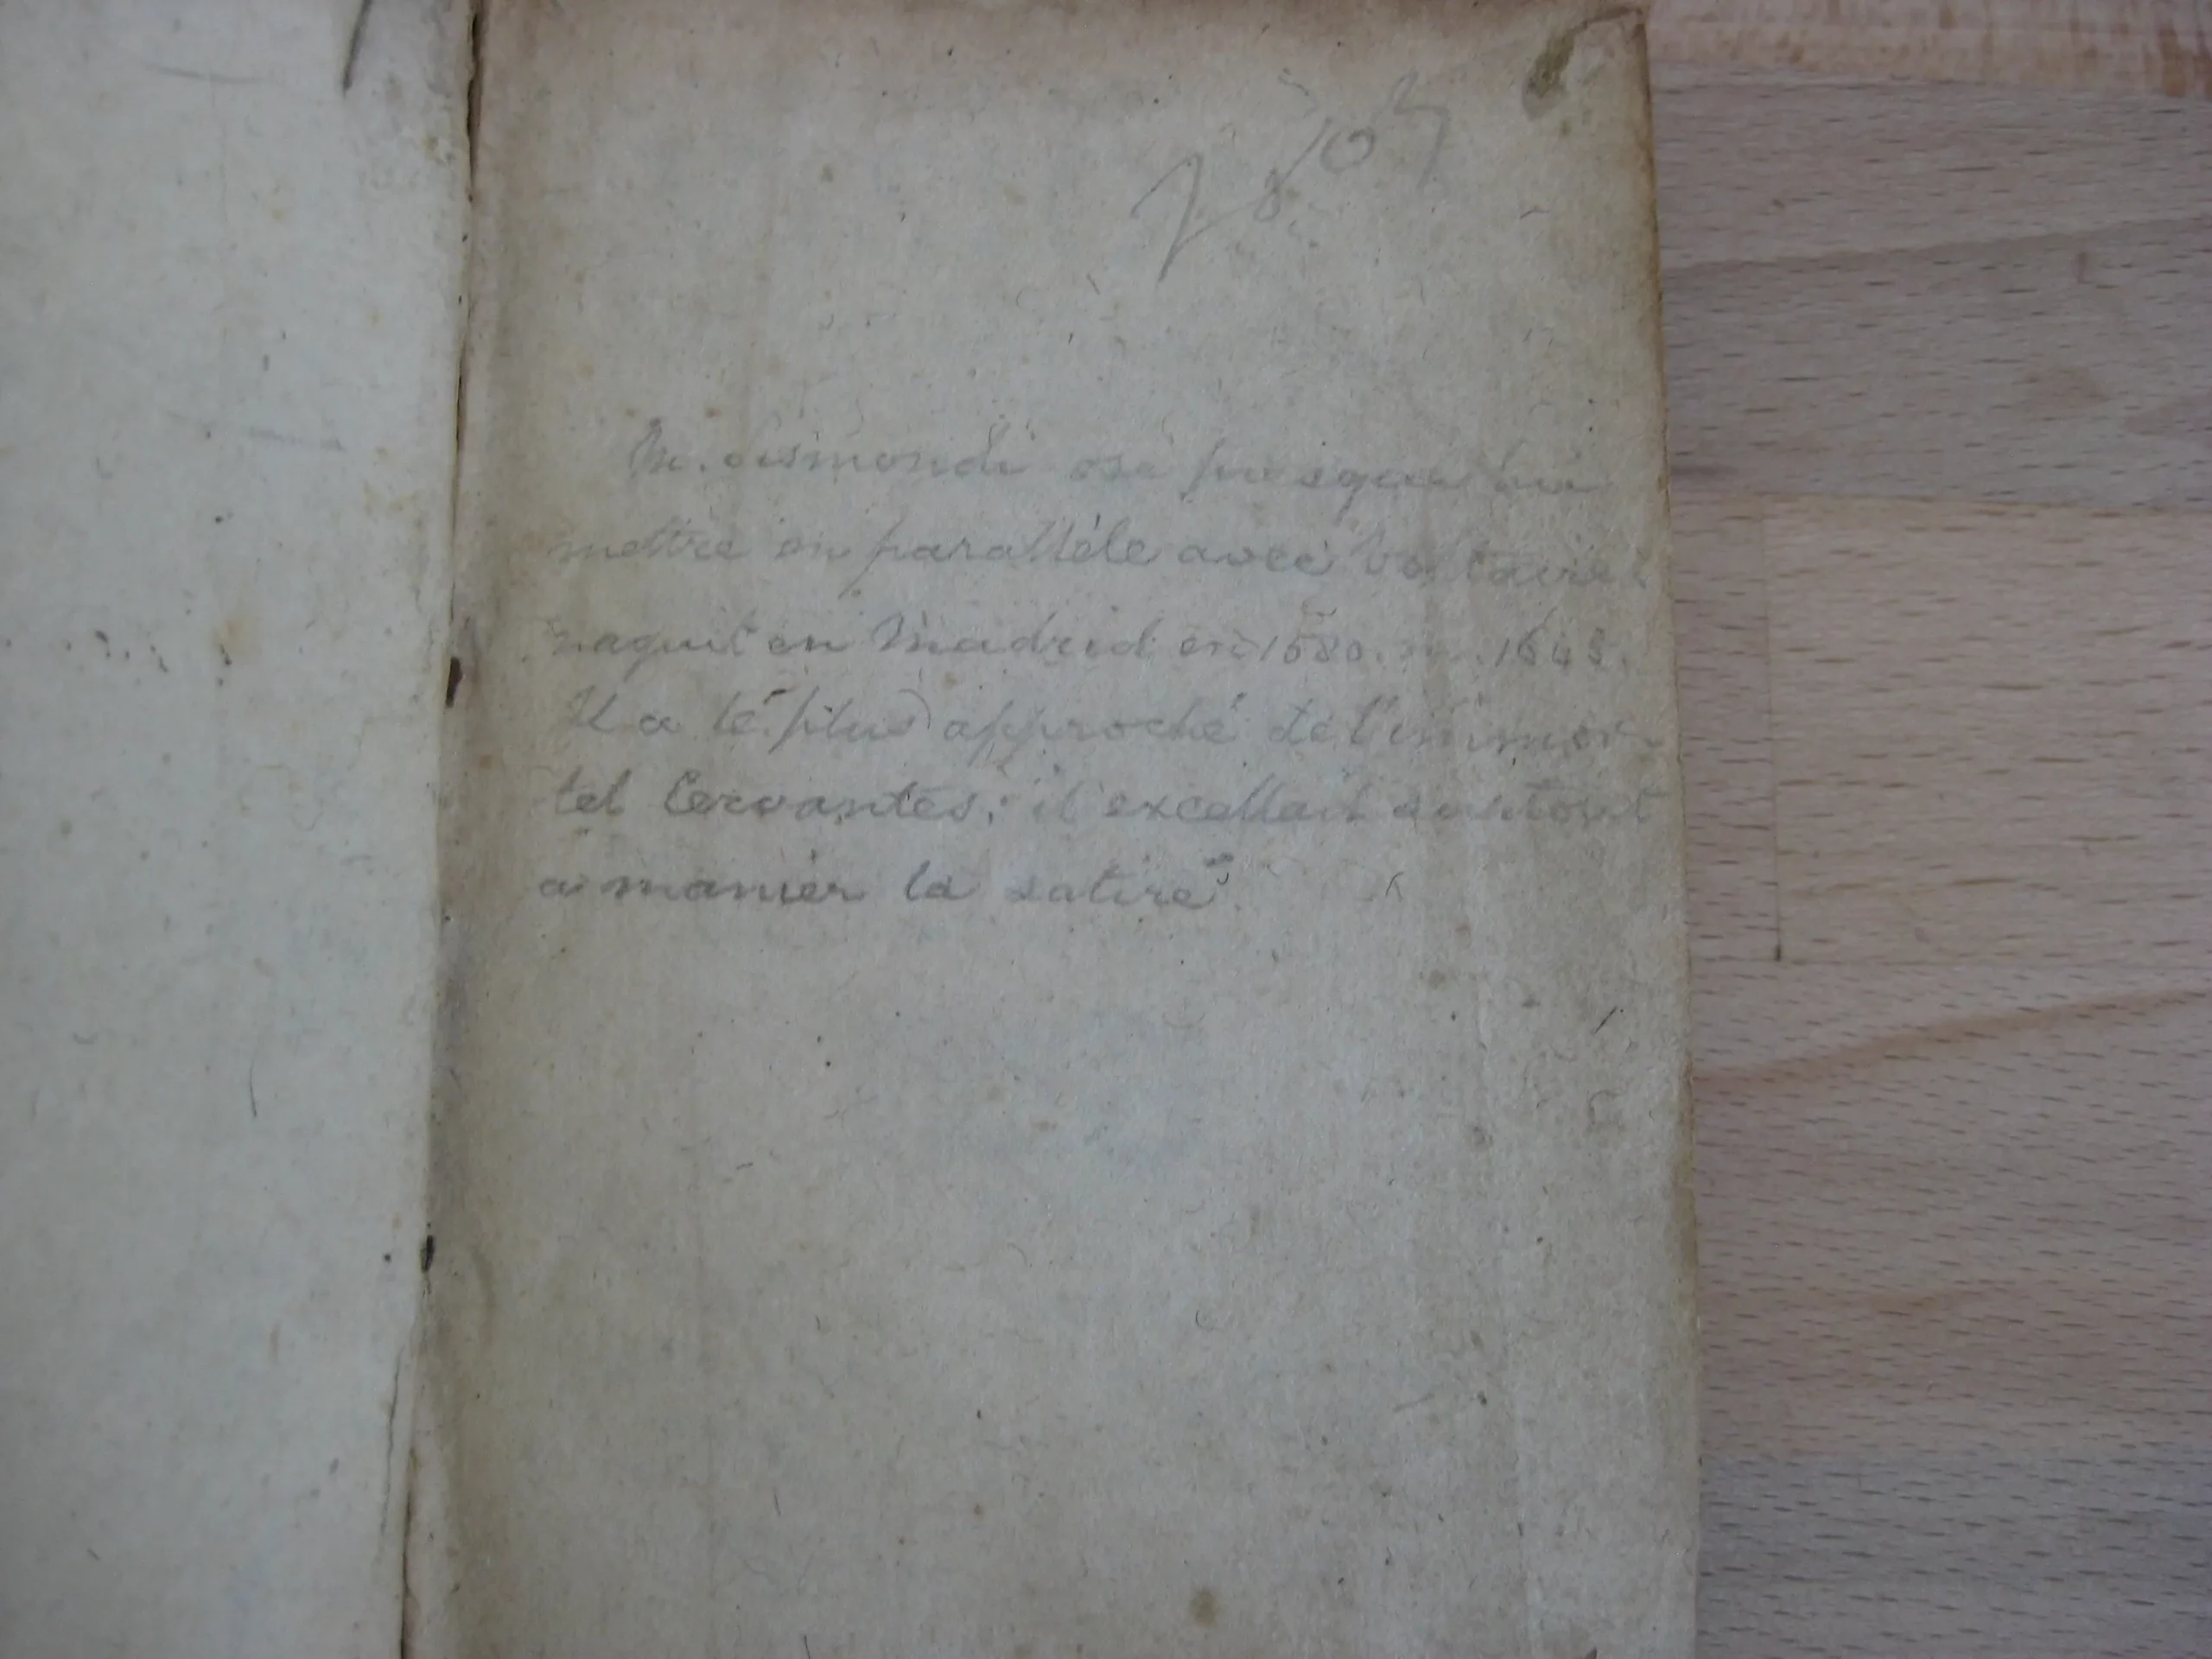 M. Sismondi ose presque lui
mettre en parallèle avec Voltaire
naquit en Madrid en 1580. m. 1645.
Il a le plus approché de l'immor-
tel Cervantes; il excellait surtout
a manier la satire.